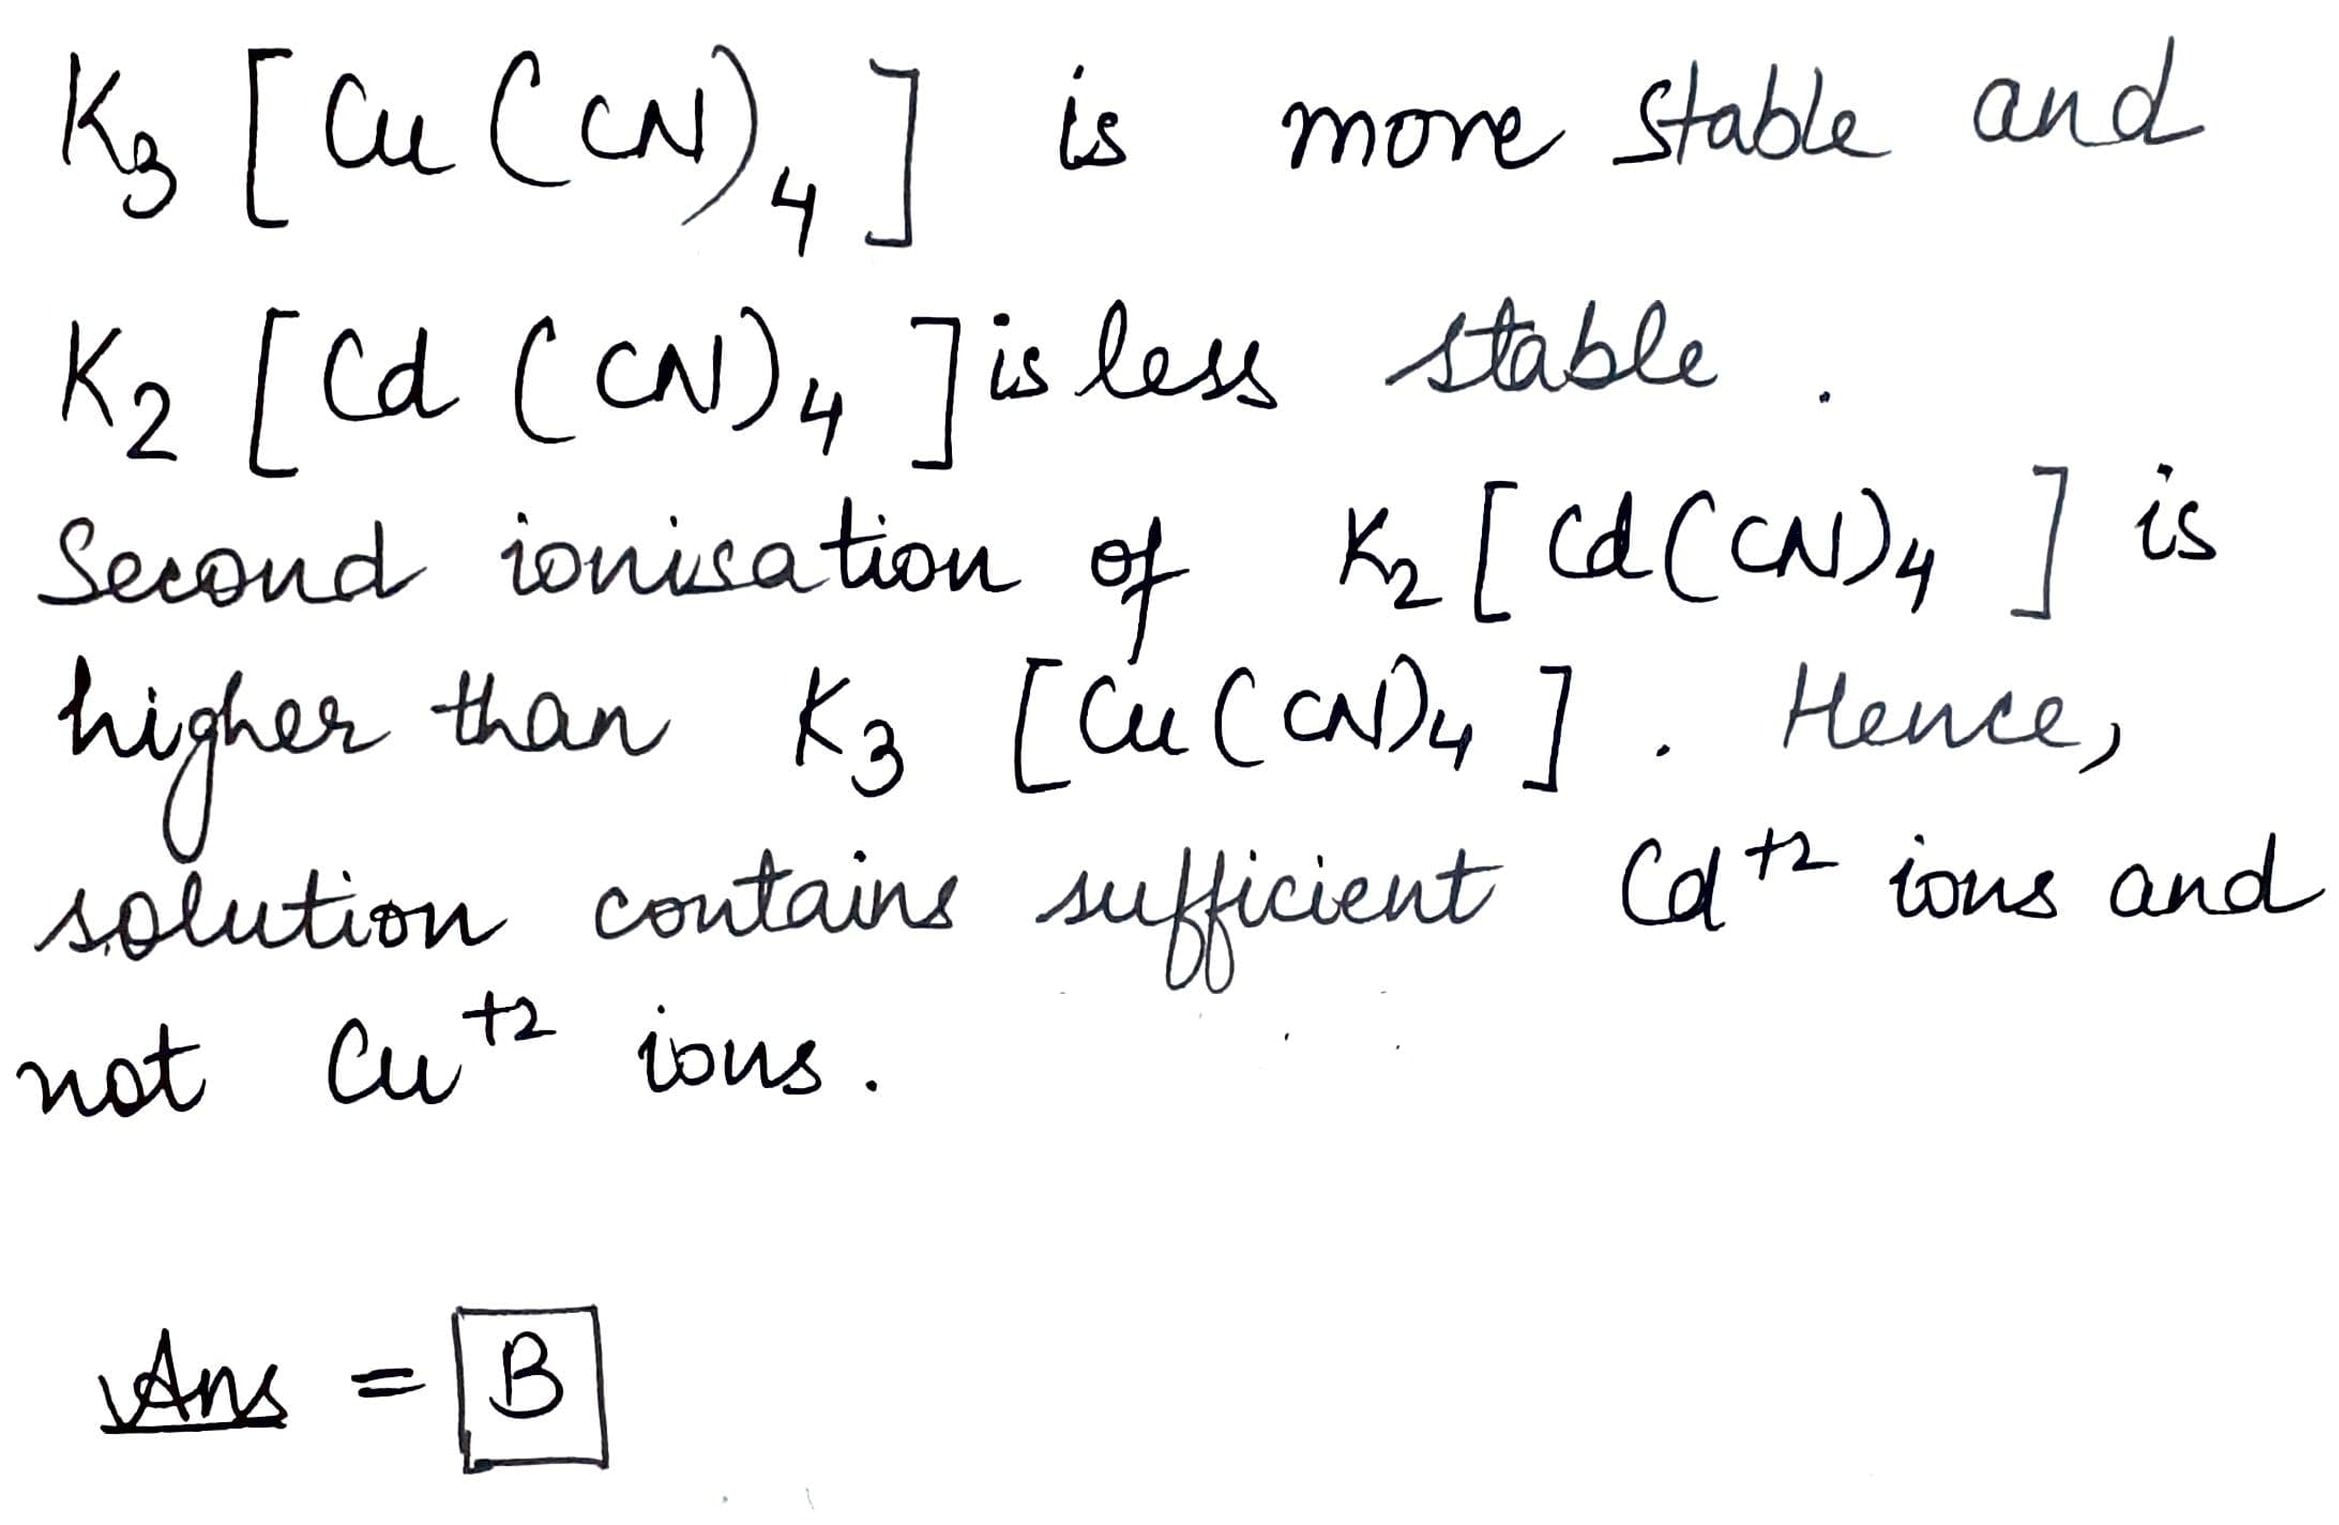 K3 [Cu(CN)4] is more stable and
K2 [Cd(CN)4] is less stable.
Second ionisation of K2[Cd(CN)4] is
higher than K3 [Cu(CN)4]. Hence,
solution contains sufficient Cd+2 ions and
not Cu+2 ions.
Ans = B